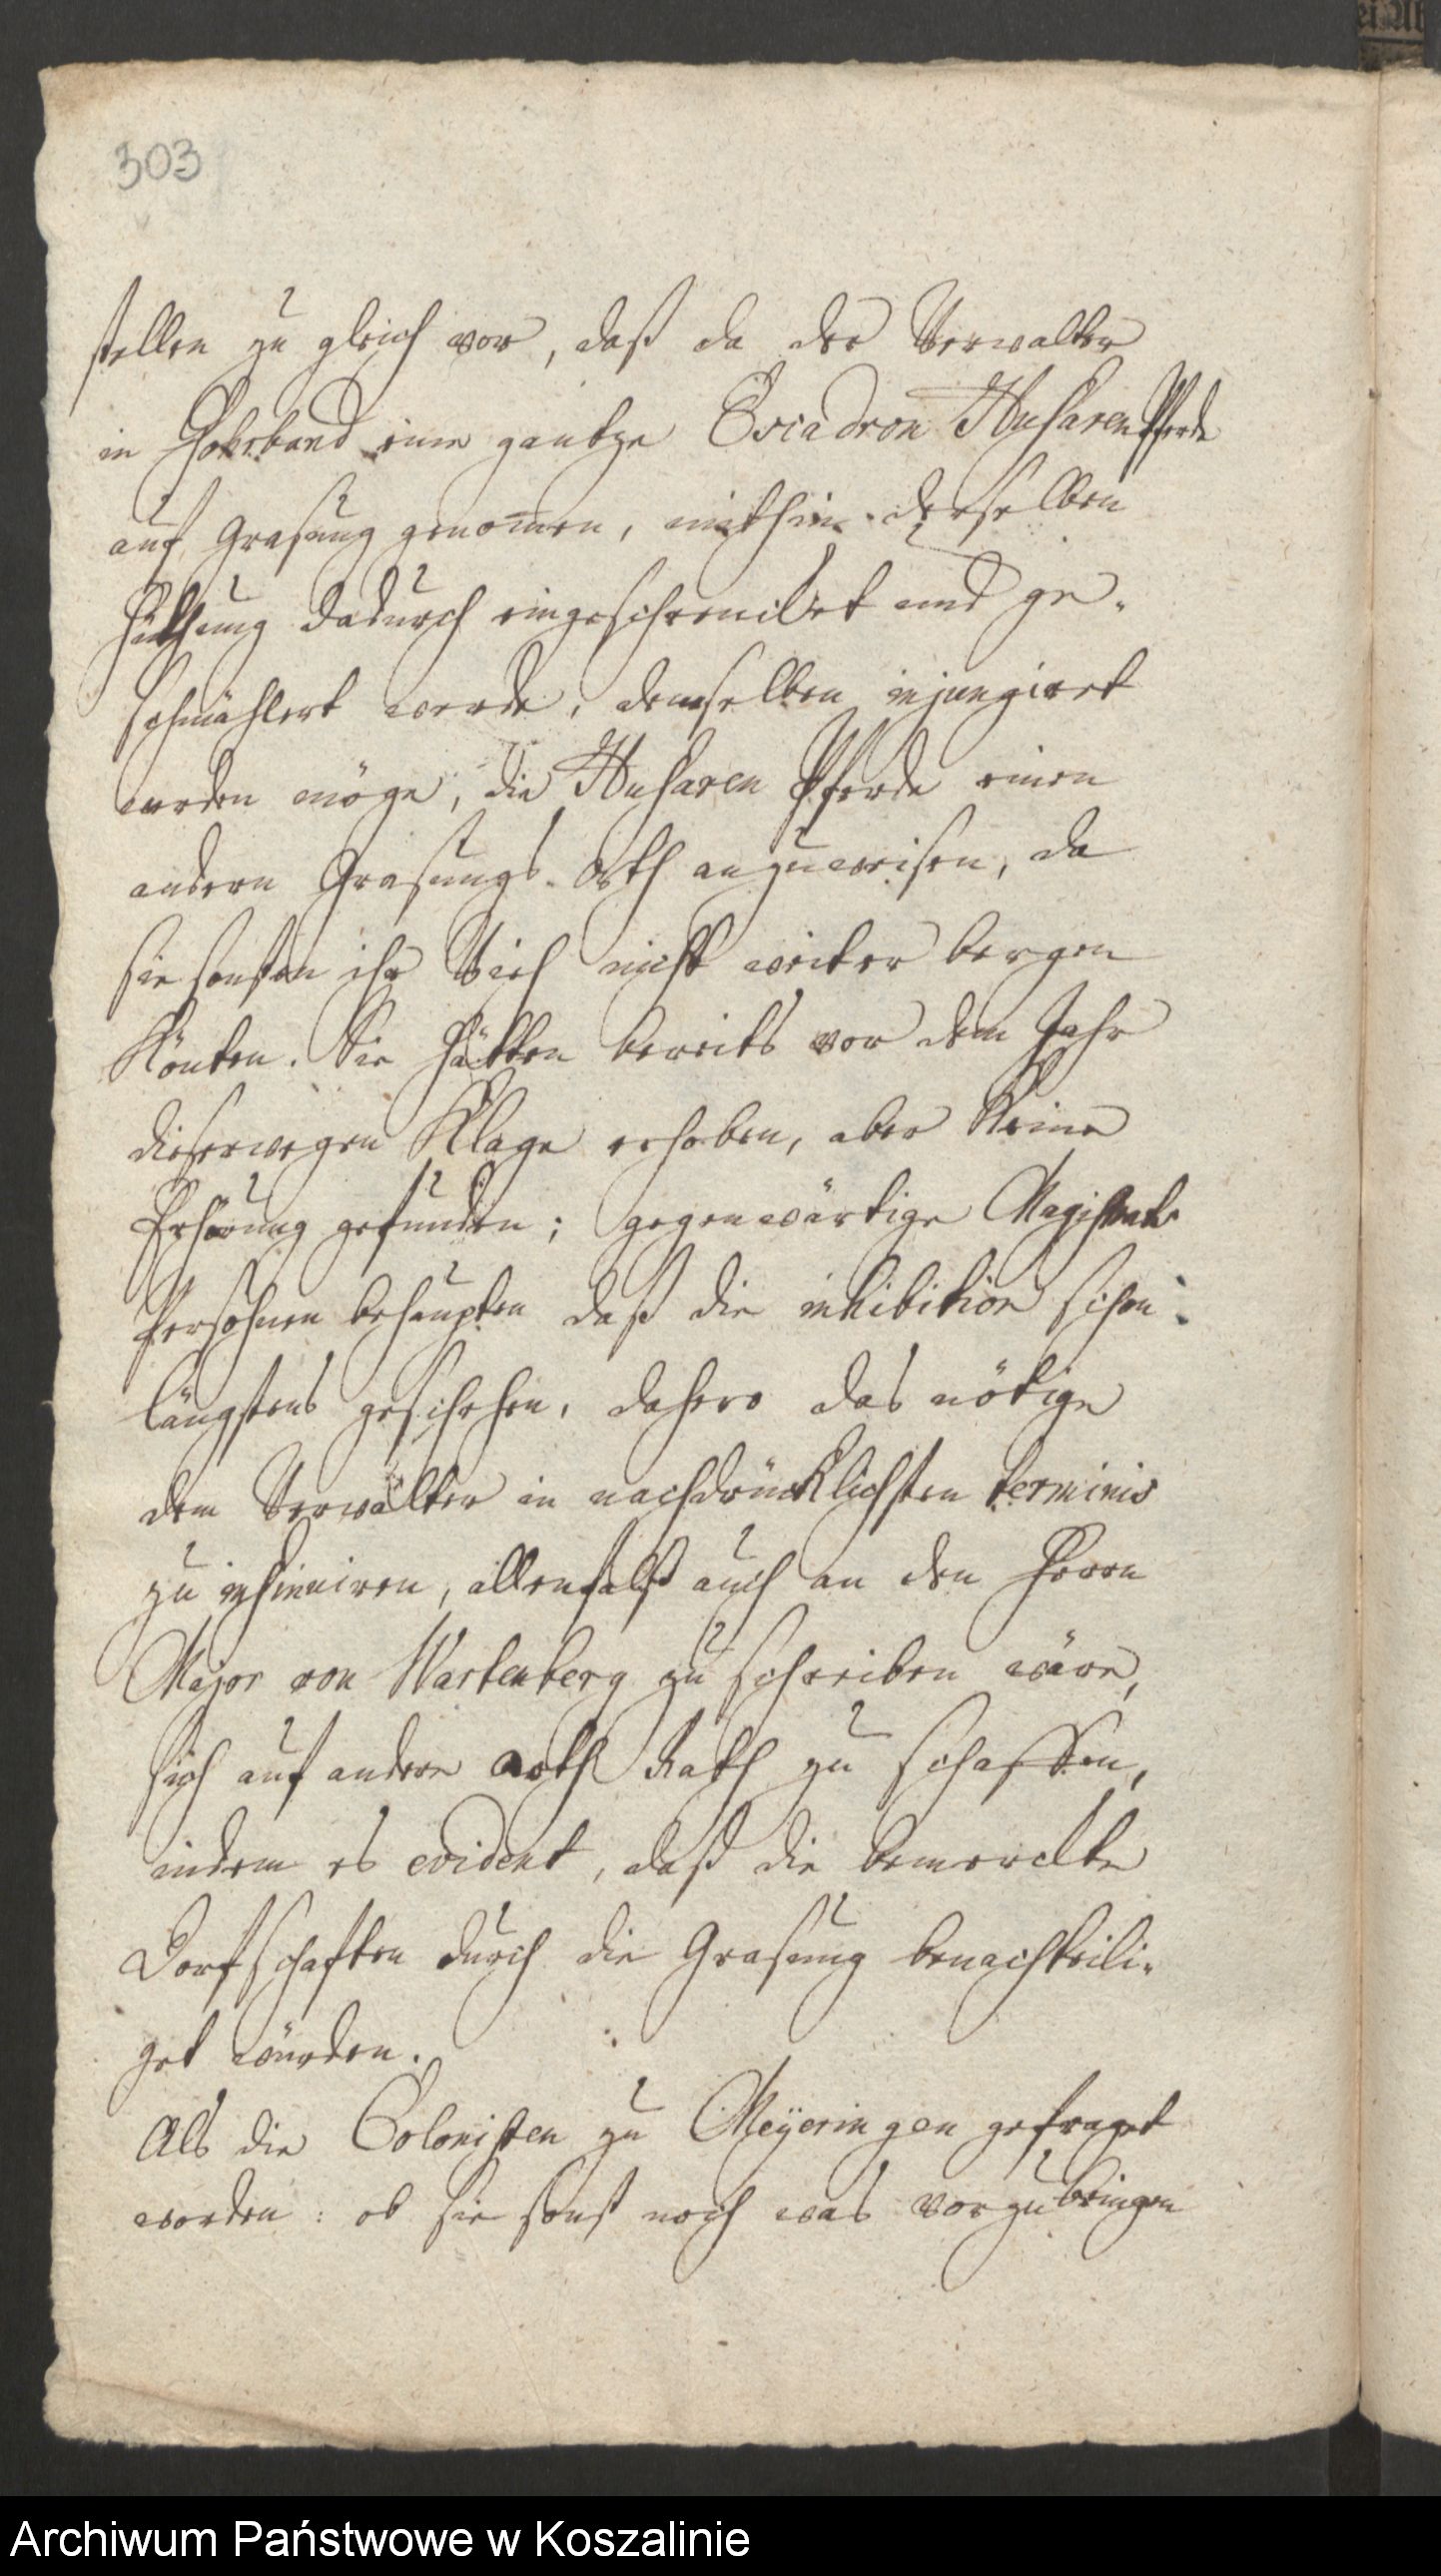 303
stellen zu gleich vor, daß da der Verwalter
in eine gantze Escadron Husaren Pferde
auf Grasung genomen, mithin derselben
Hüthung dadurch eingeschrenckt und ge-
schmählert werde, demselben injungiret
werden möge, die Husaren Pferde einen
andern Grasungs-Orth anzuweisen, da
sie sonsten ihr Vieh nicht weiter bergen
Könten. Sie hätten bereits vor dem Jahr
dieserwegen Klage erhoben, aber Keine
Erhörung gefunden; gegenwärtige Magistrats
Persohnen behaupten daß die inhibition schon
längstens geschehen, dahero das nötige
dem Verwalter in nachdrücklichsten terminis
zu insinuiren, allenfalß auch an den Herrn
Major von Wartenberg zu schreiben wäre,
sich auf andere Arth Rath zu schaffen,
indem es evident, daß die bemerckte
Dorfschaften durch die Grasung benachteili-
get würden.
Als die Colonisten zu Meÿeringen gefraget
worden: ob sie sonst noch was vorzubringen
ei
Archiwum Państwowe w Koszalinie